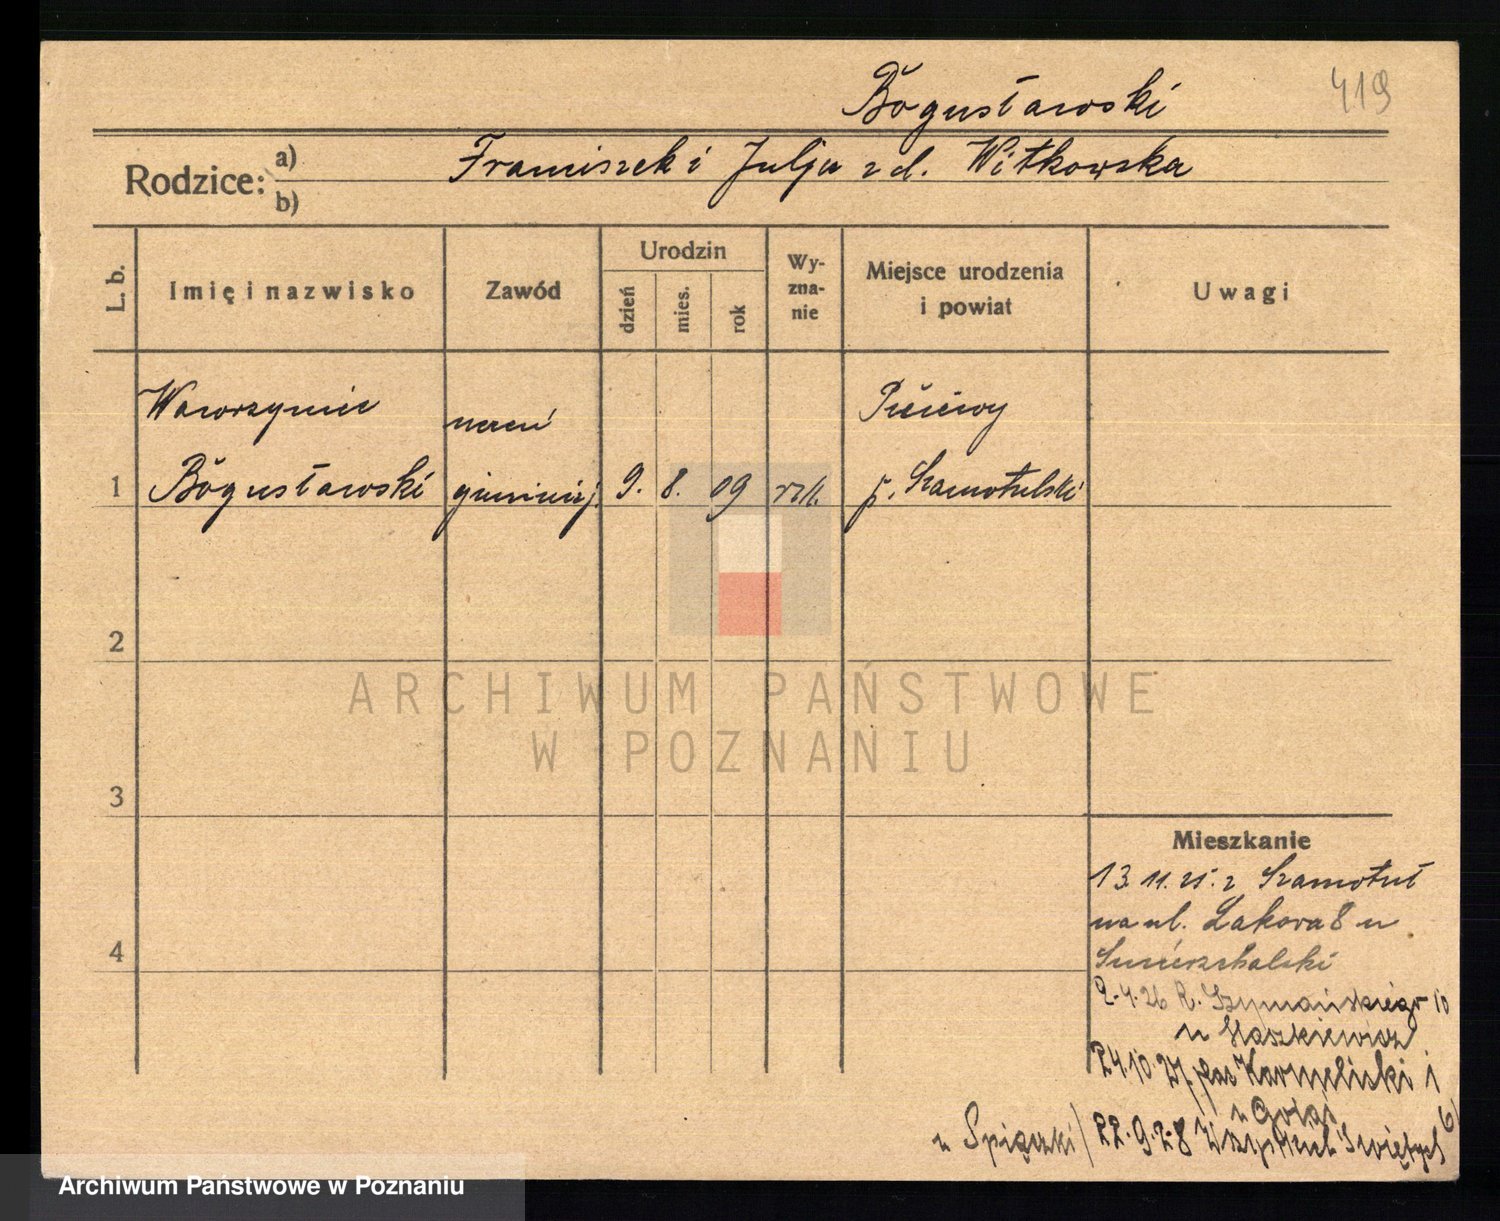 419
Bogusławski
Rodzice: a) Franciszek i Julja z d. Witkowska
b)
L. b.
Imię i nazwisko
Zawód
Urodzin
dzień
mies.
rok
Wy-
zna-
nie
Miejsce urodzenia
i powiat
Uwagi
Wawrzyniec
uczeń
1 Bogusławski
9. 8. 09 rzk.
p. Szamotulski
2
3
4
ARCHIWUM PAŃSTWOWE
W POZNANIU
Mieszkanie
13 11. 25. z Szamotuł
na ul. Łąkowa 8 u
2.4.26 R. Szymańskiego 10
u Staszkiewicz
24.10.27. plac Karmelicki 1
u
22.9.28 Wszystkich Świętych 6
u Spiączki
Archiwum Państwowe w Poznaniu